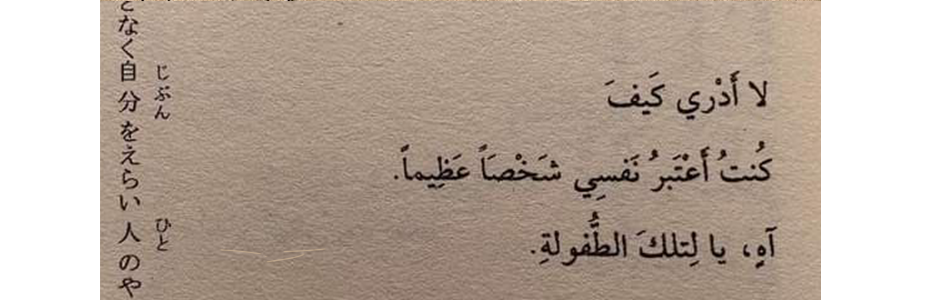 لا أَدْري كَيفَ
كُنتُ أَعْتَبرُ نَفسِي شَخْصَاً عَظِيماً.
آهٍ، يا لِتلكَ الطُّفولةِ.
となく自分をえらい人のや
じぶん
ひと